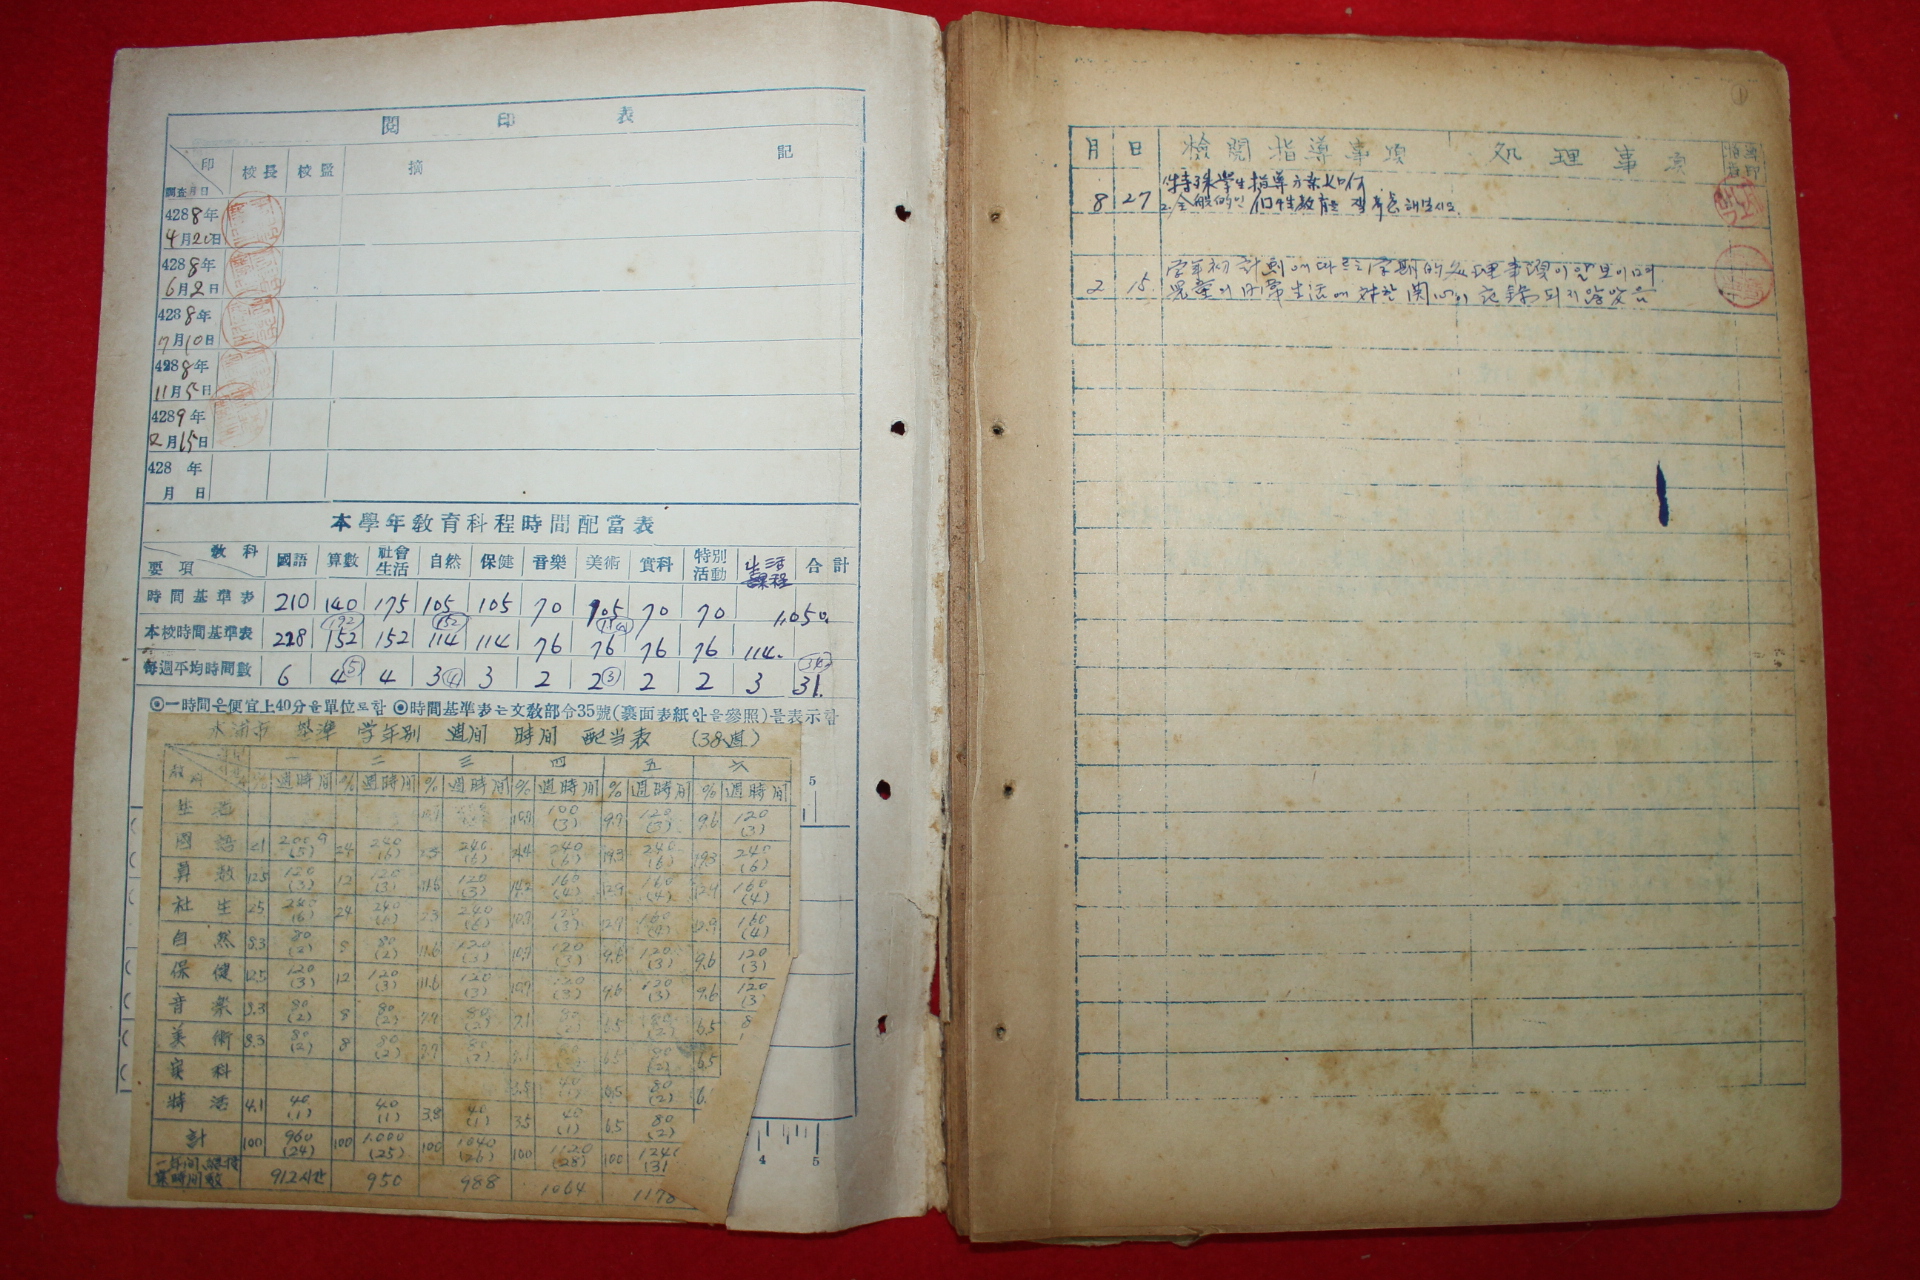 閱 印 表
印 校長 校監 摘 記
調査月日
4288年
4月20日
4288年
6月2日
4288年
7月10日
4288年
11月5日
4289年
2月15日
428 年
月 日
本學年敎育科程時間配當表
敎科 國語 算數 社會生活 自然 保健 音樂 美術 實科 特別活動 生活 合計
要項
時間基準表 210 140 175 105 105 70 105 70 70 1,050.
本校時間基準表 228 152 (192) 152 114 (152) 114 76 76 (114) 76 76 114.
每週平均時間數 6 4 (5) 4 3 (4) 3 2 2 (3) 2 2 3 31.
◉一時間은便宜上40分을單位로함 ◉時間基準表는文敎部令35號(裏面表紙안을參照)를表示함
木浦市 基準 学年別 週间 時间 配当表 (38週)
一 二 三 四 五 六
% 週時间 % 週時间 % 週時间 % 週時间 % 週時间 % 週時间
生活 10.7 100 (3) 9.7 120 (3) 9.6 120 (3)
國語 21 200 (5) 24 240 (6) 23 240 (6) 240 (6) 19.3 240 (6) 19.3 240 (6)
算数 12.5 120 (3) 12 120 (3) 11.6 120 (3) 14.2 160 (4) 12.9 160 (4) 12.9 160 (4)
社生 25 240 (6) 24 240 (6) 23 240 (6) 10.7 120 (3) 12.9 160 (4) 12.9 160 (4)
自然 8.3 80 (2) 8 80 (2) 11.6 120 (3) 10.7 120 (3) 9.6 120 (3) 9.6 120 (3)
保健 12.5 120 (3) 12 120 (3) 11.6 120 (3) 10.7 120 (3) 9.6 120 (3) 9.6 120 (3
音楽 8.3 80 (2) 8 80 (2) 7.7 80 (2) 7.1 80 (2) 6.5 80 (2) 6.5 8
美術 8.3 80 (2) 8 80 (2) 7.7 80 (2) 7.1 6.5 80 (2) 6.5
実科 3.5 40 (1) 6.5 80 (2) 6.
特活 4.1 40 (1) 40 (1) 3.8 40 (1) 3.5 40 (1) 6.5 80 (2)
計 100 960 (24) 100 1,000 (25) 100 1040 (26) 100 1120 (28) 100 124 (31
一年间 912시간 950 988 1064 1178
5
4 5
①
月 日 檢閱指導事項 処理事項
8 27 特殊學生指導方案如何
2. 全般的인 個性敎育을 잘 考慮해보시오.
学年初計劃에따르는 学期的処理事項이안보이며
2 15 児童의 日常生活에 対한 関心이 記錄되지않았음